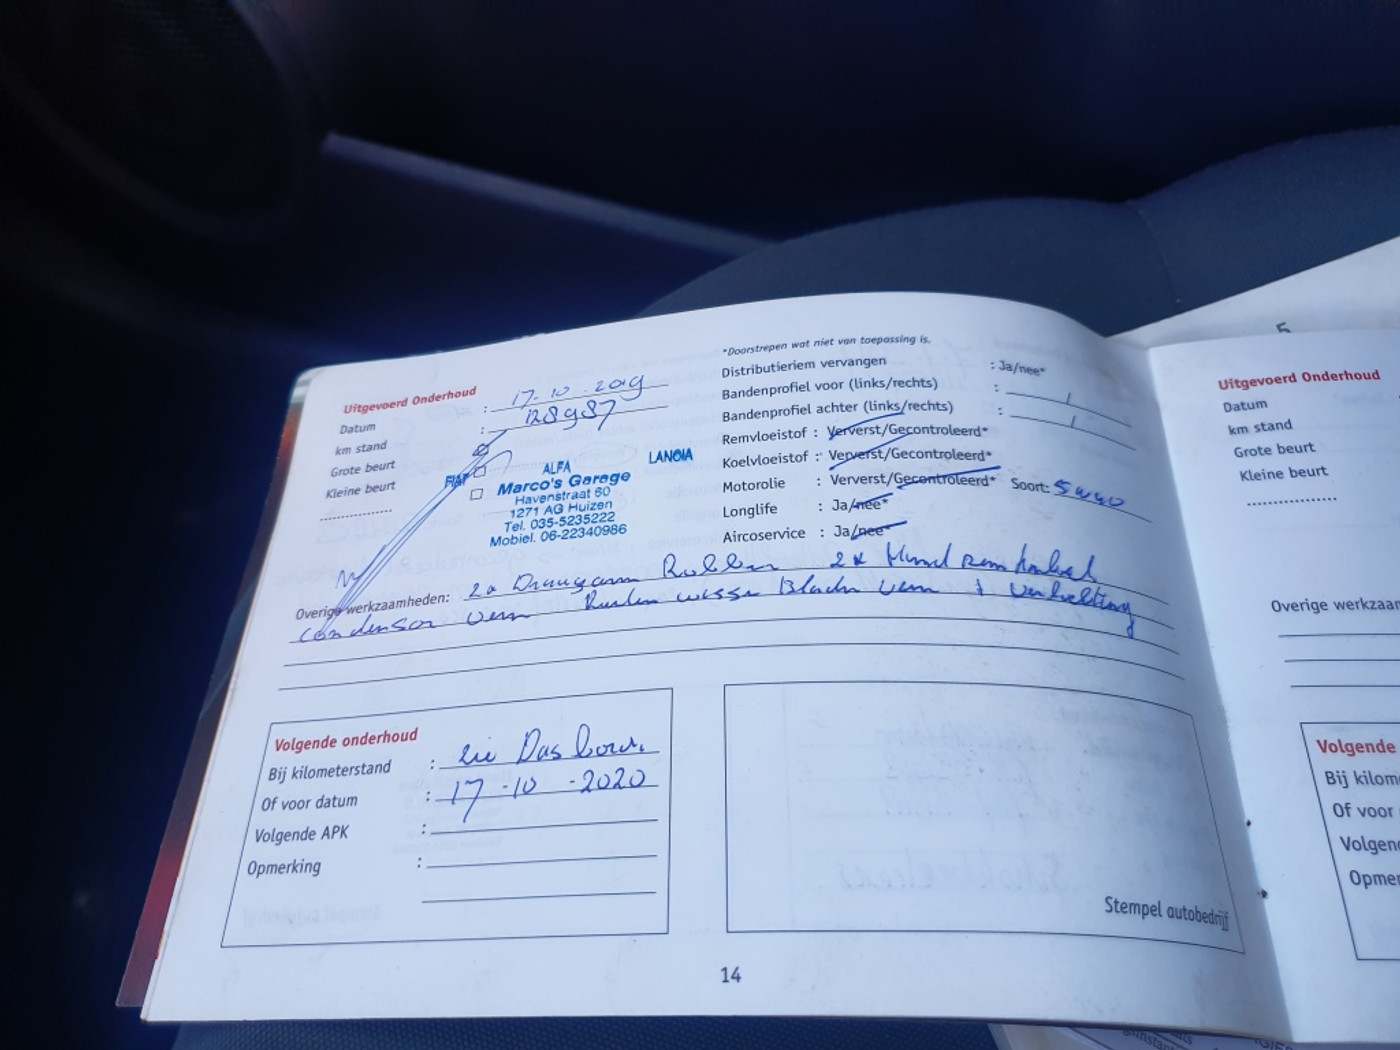 *Doorstrepen wat niet van toepassing is.
Uitgevoerd Onderhoud
Datum : 17-10-2019
km stand : 128987
Grote beurt
Kleine beurt
FIAT ALFA LANCIA
Marco's Garage
Havenstraat 60
1271 AG Huizen
Tel. 035-5235222
Mobiel. 06-22340986
Distributieriem vervangen : Ja/nee*
Bandenprofiel voor (links/rechts) : /
Bandenprofiel achter (links/rechts) : /
Remvloeistof : Ververst/Gecontroleerd*
Koelvloeistof : Ververst/Gecontroleerd*
Motorolie : Ververst/Gecontroleerd* Soort: 5W40
Longlife : Ja/nee*
Aircoservice : Ja/nee*
Overige werkzaamheden: 2x Draagarm Rubber 2x Hand rem kabel
condensor vern Ruiten wisser Bladen vern +
Volgende onderhoud
Bij kilometerstand : zie Dasbord.
Of voor datum : 17-10-2020
Volgende APK :
Opmerking :
Stempel autobedrijf
14
5
Uitgevoerd Onderhoud
Datum
km stand
Grote beurt
Kleine beurt
Overige werkzaam
Volgende
Bij kilom
Of voor
Volgen
Opmer